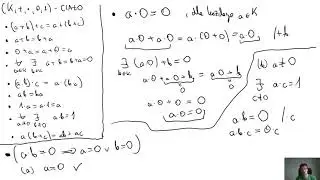 (K,+,·,0,1) - ciało
• a+(b+c) = (a+b)+c
• a+b=b+a
• 0+a=a+0=a
• ∀ a∈K ∃ b∈K a+b=0
• (a·b)·c = a·(b·c)
• 1·a=a·1=a
• ∀ a≠0 ∃ b≠0 a·b=1
• a(b+c)=ab+ac
• (a·b=0 ⟹ a=0 ∨ b=0)
(a) a=0 ✓
• a·0=0, dla każdego a∈K
a·0+a·0=a·(0+0)=a·0 /+b
∃ b∈K (a·0)+b=0
a·0+a·0+b=a·0+b
a·0+0=0
a·0=0
(b) a≠0
∃ c≠0 a·c=1
a·b=0 /·c
a·b·c=0·c